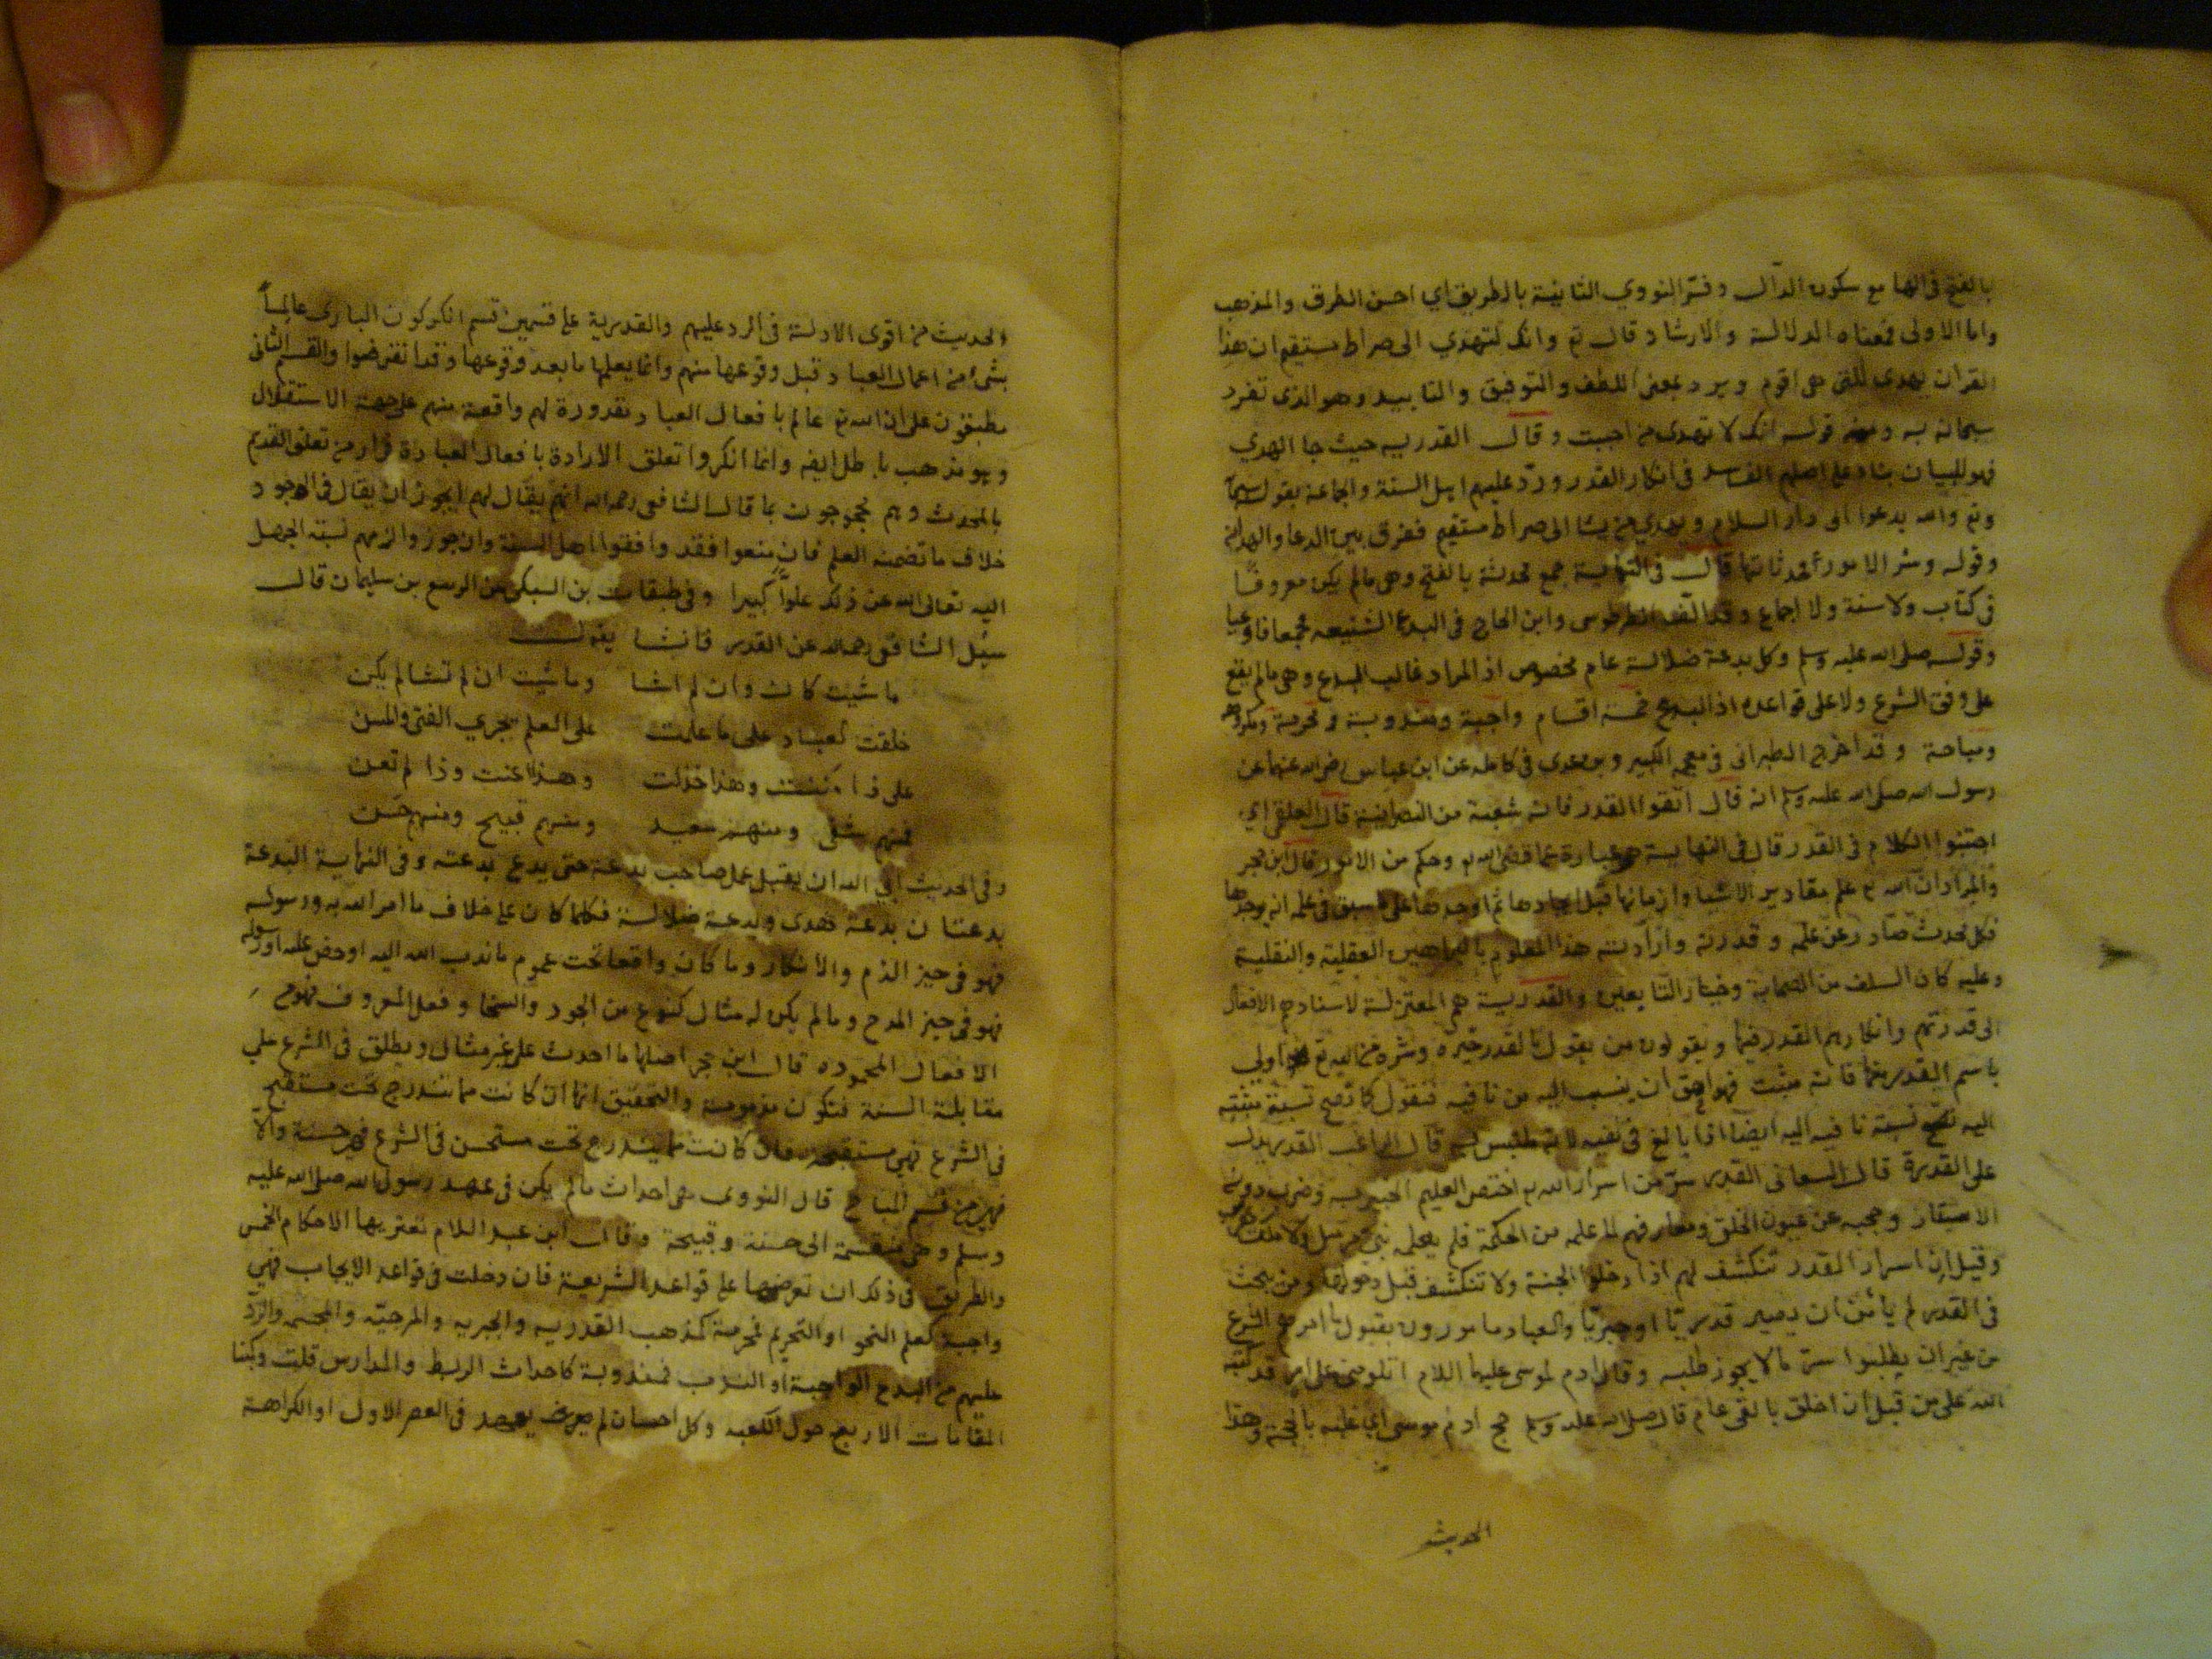 بالفتح فى الها مع سكون الدال وفسر النووي الثانية بالطريق اي احسن الطرق والمذهب
واما الاولى فمعناه الدلالة والارشاد قال تع وانك لتهدي الى صراط مستقيم ان هذا
القران يهدى للتى هى اقوم ويرد بمعنى اللطف والتوفيق والتاييد وهو الذى تفرد
سبحانه به ومنه قوله انك لا تهدى من احببت وقال القدريه حيث جا الهدي
فهو للبيان بناء على اصلهم الفاسد فى انكار القدر ورد عليهم اهل السنة والجماعة بقوله
وتع والله يدعوا الى دار السلام ويهدي من يشا الى صراط مستقيم ففرق بين الدعا والهداية
وقوله وشر الامور محدثاتها قال فى النهاية جمع محدثة بالفتح وهى مالم يكن معروفا
فى كتاب ولا سنة ولا اجماع وقد الف الطرطوسى وابن الحاج فى البدع الشنيعه
وقوله صلى الله عليه وسلم وكل بدعة ضلالة عام مخصوص اذ المراد غالب البدع وهى مالم يقع
على وفق الشرع ولا على قواعده اذ البدع خمسة اقسام واجبة ومندوبة ومحرمة ومكروهة
ومباحة وقد اخرج الطبرانى فى معجمه الكبير وبن عدى فى كامله عن ابن عباس رضى الله عنهما عن
رسول الله صلى الله عليه وسلم انه قال اتقوا القدر فانه شعبة من النصرانية قال العلقمى اي
اجتنبوا الكلام فى القدر قال فى النهاية هو عبارة عما قضى الله تع وحكم من الامور قال ابن حجر
والمراد ان الله تع علم مقادير الاشيا وازمانها قبل ايجادها ثم اوجدها على ما سبق فى علمه انه يوجدها
فكل محدث صادر عن علمه وقدرته وارادته هذا المعلوم بالبراهين العقلية والنقلية
وعليه كان السلف من الصحابة وخيار التابعين والقدرية هم المعتزلة لاسنادهم الافعال
الى قدرتهم وانكارهم القدر فيها ويقولون من يقول بالقدر خيره وشره من الله تع اولى
باسم القدرية منا فانه مثبت فهو احق ان ينسب اليه من نافيه فنقول كما تصح نسبة مثبته
اليه تصح نسبة نافيه اليه ايضا اذا بالغ فى نفيه لانه ملتبس به قال الراغب القدر يدل
على القدرة قال السمعانى القدر سر من اسرار الله تع اختص العليم الخبير به وضرب دونه
الاستار وحجبه عن عيون الخلق ومعارفهم لما علمه من الحكمة فلم يعلمه نبى مرسل ولا ملك مقرب
وقيل ان اسرار القدر تنكشف لهم اذا دخلوا الجنة ولا تنكشف قبل دخولها ومن بحث
فى القدر لم يأمن ان يصير قدريا او جبريا والعباد مامورون بقبول ما امرهم الشرع
من غير ان يطلبوا سر ما لا يجوز طلبه وقال ادم لموسى عليهما السلام اتلومنى على امر قد كتبه
الله على من قبل ان اخلق بالفى عام قال صلى الله عليه وسلم فحج ادم موسى اي غلبه بالحجة وهذا
الحديث
الحديث من اقوى الادلة فى الرد عليهم والقدرية على قسمين قسم انكر كون البارى عالما
بشئ من اعمال العباد قبل وقوعها منهم وانما يعلمها ما بعد وقوعها وقد انقرضوا والقسم الثانى
مطبقون على ان الله تع عالم بافعال العباد مقدورة لهم واقعة منهم على جهة الاستقلال
وهو مذهب باطل ايضه وانما انكروا تعلق الارادة بافعال العباد فرارا من تعلق القديم
بالمحدث وهم محجوجون بما قال الشافعى رحمه الله انهم يقال لهم ايجوز ان يقال فى الوجود
خلاف ما تضمنه العلم فان منعوا فقد وافقوا اهل السنة وان جوزوا لزمهم نسبة الجهل
اليه تعالى الله عن ذلك علوا كبيرا وفى طبقات بن السبكى عن الربيع بن سليمان قال
سئل الشافعى رحمه الله عن القدر فانشا يقول
ما شيت كان وان لم اشا وما شيت ان لم تشا لم يكن
خلقت العباد على ما علمت على العلم يجري الفتى والمسن
على ذا مننت وهذا خذلت وهذا اعنت وذا لم تعن
فمنهم شقى ومنهم سعيد ومنهم قبيح ومنهم حسن
وفى الحديث ابى الله ان يقبل عمل صاحب بدعة حتى يدع بدعته وفى النهاية البدعة
بدعتان بدعة هدى وبدعة ضلالة فكلما كان على خلاف ما امر الله به ورسوله
فهو فى حيز الذم والانكار وما كان واقعا تحت عموم ما ندب الله اليه او حض عليه او رسوله
فهو فى حيز المدح وما لم يكن له مثال كنوع من الجود والسخا وفعل المعروف فهو من
الافعال المحموده قال ابن حجر اصلها ما احدث على غير مثال ويطلق فى الشرع على
مقابلة السنة فتكون مذمومة والتحقيق انها ان كانت مما تندرج تحت مستقبح
فى الشرع فهى مستقبحه وان كانت مما يندرج تحت مستحسن فى الشرع فهى حسنة والا
فهى من قسم المباح قال النووى هى احداث مالم يكن فى عهد رسول الله صلى الله عليه
وسلم وهى منقسمة الى حسنة وقبيحة وقال ابن عبد السلام تعتريها الاحكام الخمس
والطريق فى ذلك ان تعرضها على قواعد الشريعة فان دخلت فى قواعد الايجاب فهى
واجبة كعلم النحو او التحريم فمحرمة كمذهب القدريه والجبريه والمرجيه والمجسمه والرد
عليهم من البدع الواجبة او الندب فمندوبة كاحداث الربط والمدارس قلت وكبنا
المقامات الاربع حول الكعبه وكل احسان لم يعهد فى العصر الاول او الكراهة